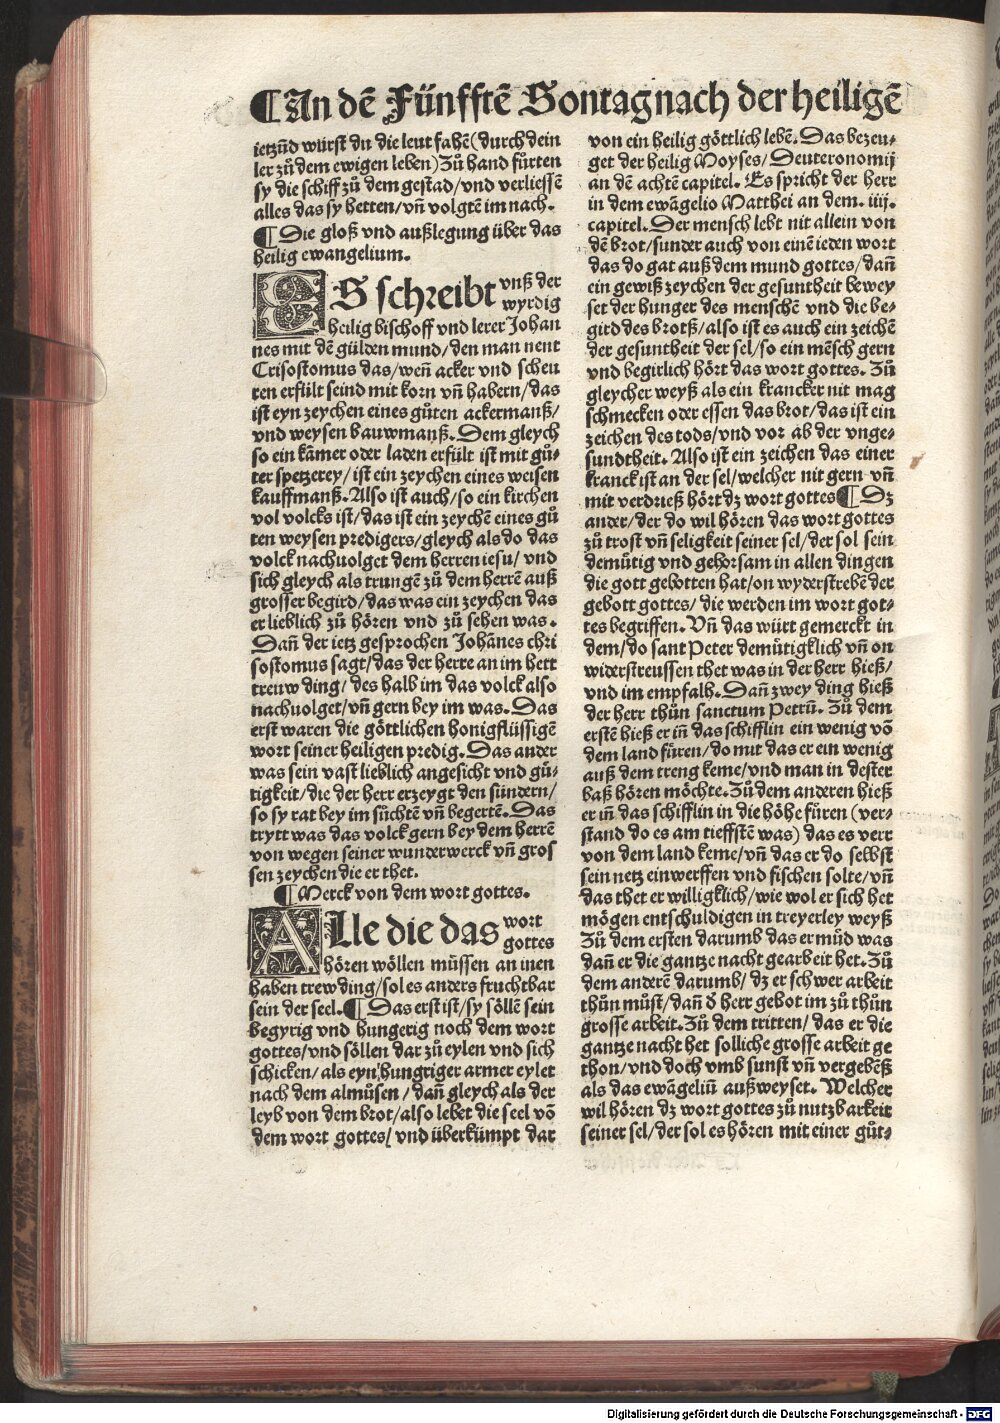 ¶ An dē Fünfftē Sontag nach der heiligē
ietzūd würst du die leut fahē (durch dein
ler zů dem ewigen leben) Zů hand fůrten
sy die schiff zů dem gestad/ vnd verliessē
alles das sy hetten/ vñ volgtē im nach.
¶ Die gloß vnd außlegung über das
heilig ewangelium.
ES schreibt vnß der
wyrdig
heilig bischoff vnd lerer Johan
nes mit dē gülden mund/ den man nent
Crisostomus das/ weñ acker vnd scheu
ren erfült seind mit korn vñ habern/ das
ist eyn zeychen eines gůten ackermanß/
vnd weysen bauwmanß. Dem gleych
so ein kāmer oder laden erfült ist mit gů-
ter spetzerey/ ist ein zeychen eines weisen
kauffmanß. Also ist auch/ so ein kirchen
vol volcks ist/ das ist ein zeychē eines gů
ten weysen predigers/ gleych als do das
volck nachuolget dem herren iesu/ vnd
sich gleych als trungē zů dem herrē auß
grosser begird/ das was ein zeychen das
er lieblich zů hören vnd zů sehen was.
Dañ der ietz gesprochen Johānes chri
sostomus sagt/ das der herre an im hett
treuw ding/ des halb im das volck also
nachuolget/ vñ gern bey im was. Das
erst waren die göttlichen honigflüssigē
wort seiner heiligen predig. Das ander
was sein vast lieblich angesicht vnd gů-
tigkeit/ die der herr erzeygt den sündern/
so sy rat bey im sůchtē vñ begertē. Das
trytt was das volck gern bey dem herrē
von wegen seiner wunderwerck vñ gros
sen zeychen die er thet.
¶ Merck von dem wort gottes.
ALle die das wort
gottes
hören wöllen müssen an inen
haben trew ding/ sol es anders fruchtbar
sein der seel. ¶ Das erst ist/ sy söllē sein
begyrig vnd hungerig noch dem wort
gottes/ vnd söllen dar zů eylen vnd sich
schicken/ als eyn hungriger armer eylet
nach dem almůsen/ dañ gleych als der
leyb von dem brot/ also lebet die seel vō
dem wort gottes/ vnd überkümpt dar
von ein heilig göttlich lebē. Das bezeu-
get der heilig Moyses/ Deuteronomij
an dē achtē capitel. Es spricht der herr
in dem ewāgelio Matthei an dem. iiij.
capitel. Der mensch lebt nit allein von
dē brot/ sunder auch von einē ieden wort
das do gat auß dem mund gottes/ dañ
ein gewiß zeychen der gesuntheit bewey
set der hunger des menschē vnd die be-
gird des brotß/ also ist es auch ein zeichē
der gesuntheit der sel/ so ein mēsch gern
vnd begirlich hört das wort gottes. Zů
gleycher weyß als ein krancker nit mag
schmecken oder essen das brot/ das ist ein
zeichen des tods/ vnd vor ab der vnge-
sundtheit. Also ist ein zeichen das einer
kranck ist an der sel/ welcher nit gern vñ
mit verdrieß hört dz wort gottes ¶ Dz
ander/ der do wil hören das wort gottes
zů trost vñ seligkeit seiner sel/ der sol sein
demütig vnd gehorsam in allen dingen
die gott gebotten hat/ on wyderstrebē der
gebott gottes/ die werden im wort got-
tes begriffen. Vñ das würt gemerckt in
dem/ do sant Peter demütigklich vñ on
widerstreussen thet was in der herr hieß/
vnd im empfalh. Dañ zwey ding hieß
der herr thůn sanctum Petrū. Zů dem
erstē hieß er iñ das schifflin ein wenig vō
dem land füren/ do mit das er ein wenig
auß dem treng keme/ vnd man in dester
baß hören möchte. Zů dem anderen hieß
er iñ das schifflin in die höhe füren (ver-
stand do es am tieffstē was) das es verr
von dem land keme/ vñ das er do selbst
sein netz einwerffen vnd fischen solte/ vñ
das thet er willigklich/ wie wol er sich het
mögen entschuldigen in treyerley weyß
Zů dem ersten darumb das er müd was
dañ er die gantze nacht gearbeit het. Zů
dem anderē darumb/ dz er schwer arbeit
thůn můst/ dañ d̄ herr gebot im zů thůn
grosse arbeit. Zů dem tritten/ das er die
gantze nacht het solliche grosse arbeit ge
thon/ vnd doch vmb sunst vñ vergebēß
als das ewāgeliū außweyset. Welcher
wil hören dz wort gottes zů nutzbarkeit
seiner sel/ der sol es hören mit einer gůt-
Digitalisierung gefördert durch die Deutsche Forschungsgemeinschaft - DFG